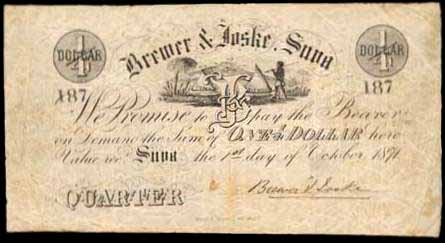 1/4 DOLLAR
Brewer & Joske, Suva
1/4 DOLLAR
187
187
We Promise to pay the Bearer
on Demand the Sum of ONE 1/4 DOLLAR here
Value rec. Suva the 1st day of October 1871
QUARTER
Brewer & Joske